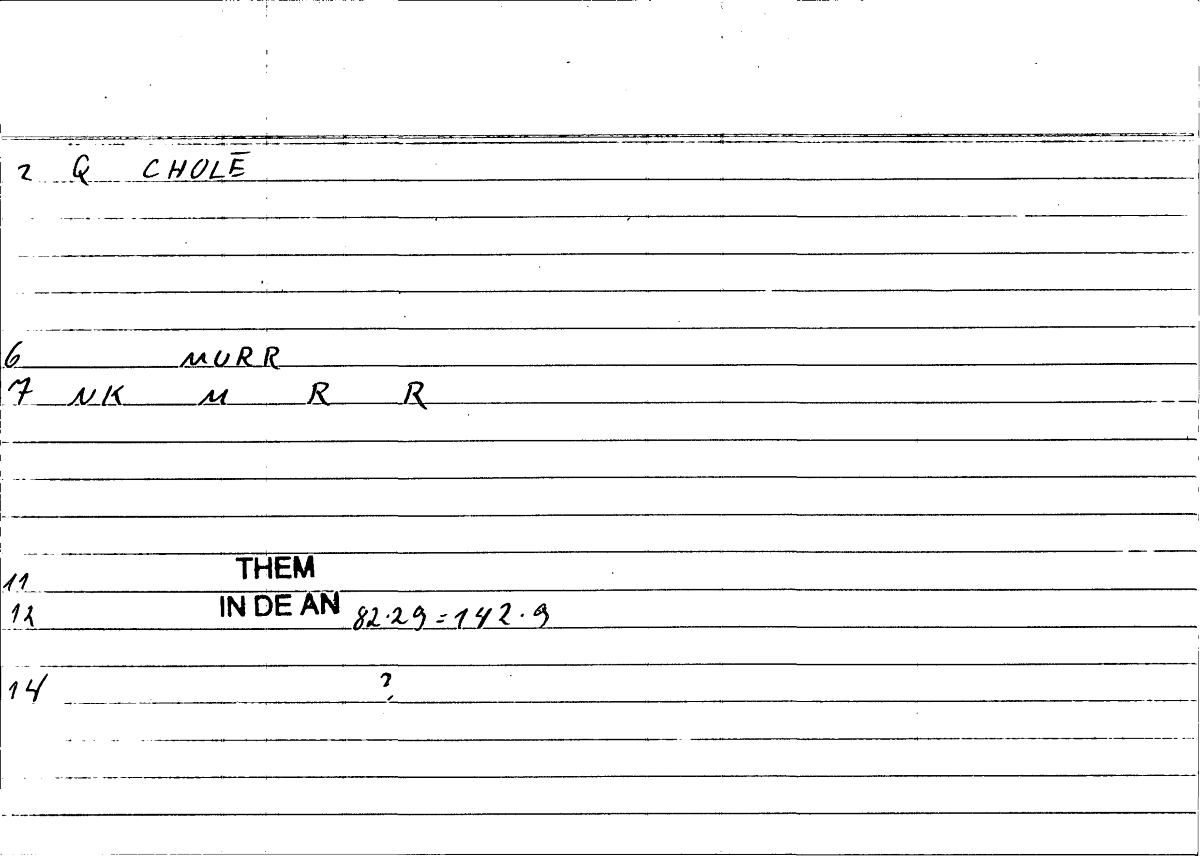 2 Q CHOLĒ
6 MURR
7 NK M R R
11 THEM
12 IN DE AN 82.29=142.9
14 ?